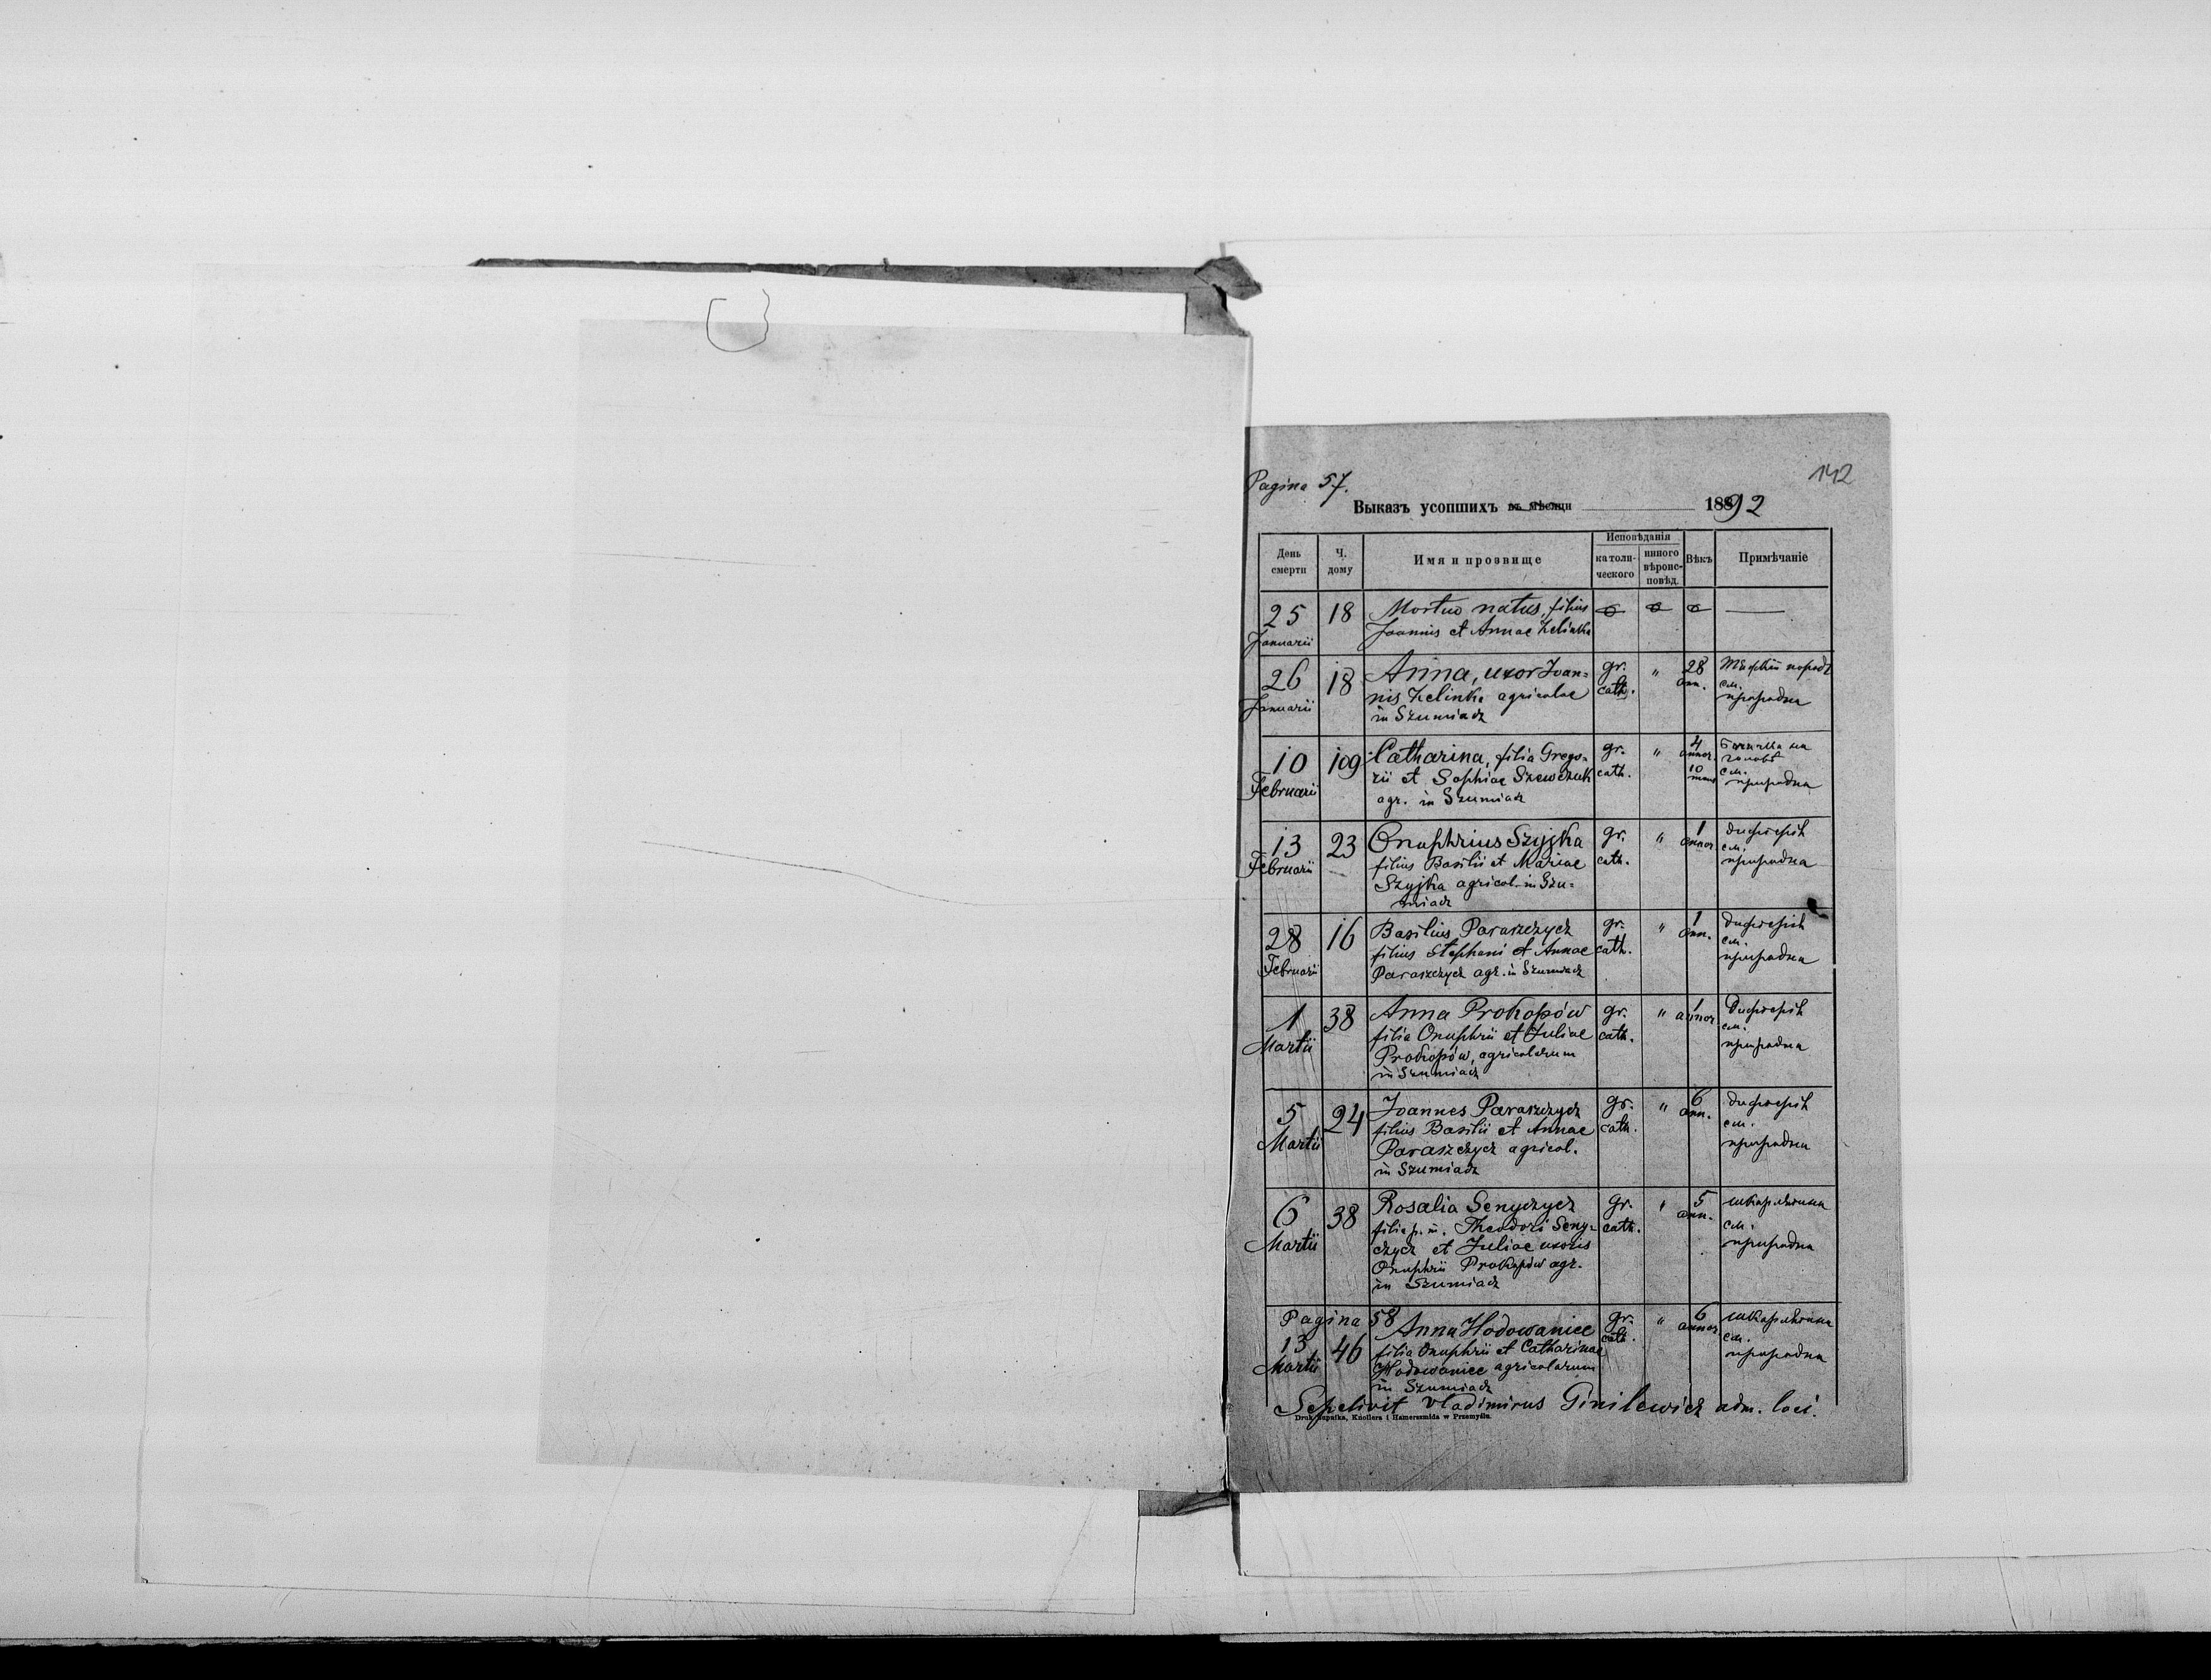 Pagina 57.
142
Выказъ усопшихъ въ мѣсяци 18892
День смерти
Ч. дому
Имя и прозвище
Исповѣданія
католи-ческого
инного вѣроис-повѣд.
Вѣкъ
Примѣчаніе
25 Januarii 18 Mortuo natus, filius
Joannis et Annae Zelinka
26 Januarii 18 Anna, uxor Joan= gr. cath. " 28 ann.
nis Zelinka agricolae см.
in Szumiacz природна
10 Februarii 109 Catharina, filia Grego= gr. cath. " 4 annor. 10 mens
rii et Sophiae Szewczuk см.
agr. in Szumiacz природна
13 Februarii 23 Onuphrius Szyjka gr. cath. " 1 annor дифтерія
filius Basilii et Mariae см.
Szyjka agricol. in Szu= природна
miacz
28 Februarii 16 Basilius Paraszczycz gr. cath. " 1 ann. дифтерія
filius Stephani et Annae см.
Paraszczycz agr. in Szumiacz природна
1 Martii 38 Anna Prokopów gr. cath. " 1 annor Дифтерія
filia Onuphrii et Juliae см.
Prokopów, agricolarum природна
in Szumiacz
5 Martii 24 Joannes Paraszczycz gr. cath. " 6 ann. дифтерія
filius Basilii et Annae см.
Paraszczycz agricol. природна
in Szumiacz
6 Martii 38 Rosalia Senyczycz gr. cath. " 5 ann. шкарлятина
filia p. m. Theodori Seny= см.
czycz et Juliae uxoris природна
Onuphrii Prokopów agr.
in Szumiacz
Pagina 58
13 Martii 46 Anna Hodowaniec gr. cath. " 6 annor шкарлятина
filia Onuphrii et Catharinae см.
Hodowaniec agricolarum природна
in Szumiacz
Sepelivit Vladimirus Ginilewicz adm. loci.
Druk Żupnika, Knollera i Hamerszmida w Przemyślu.